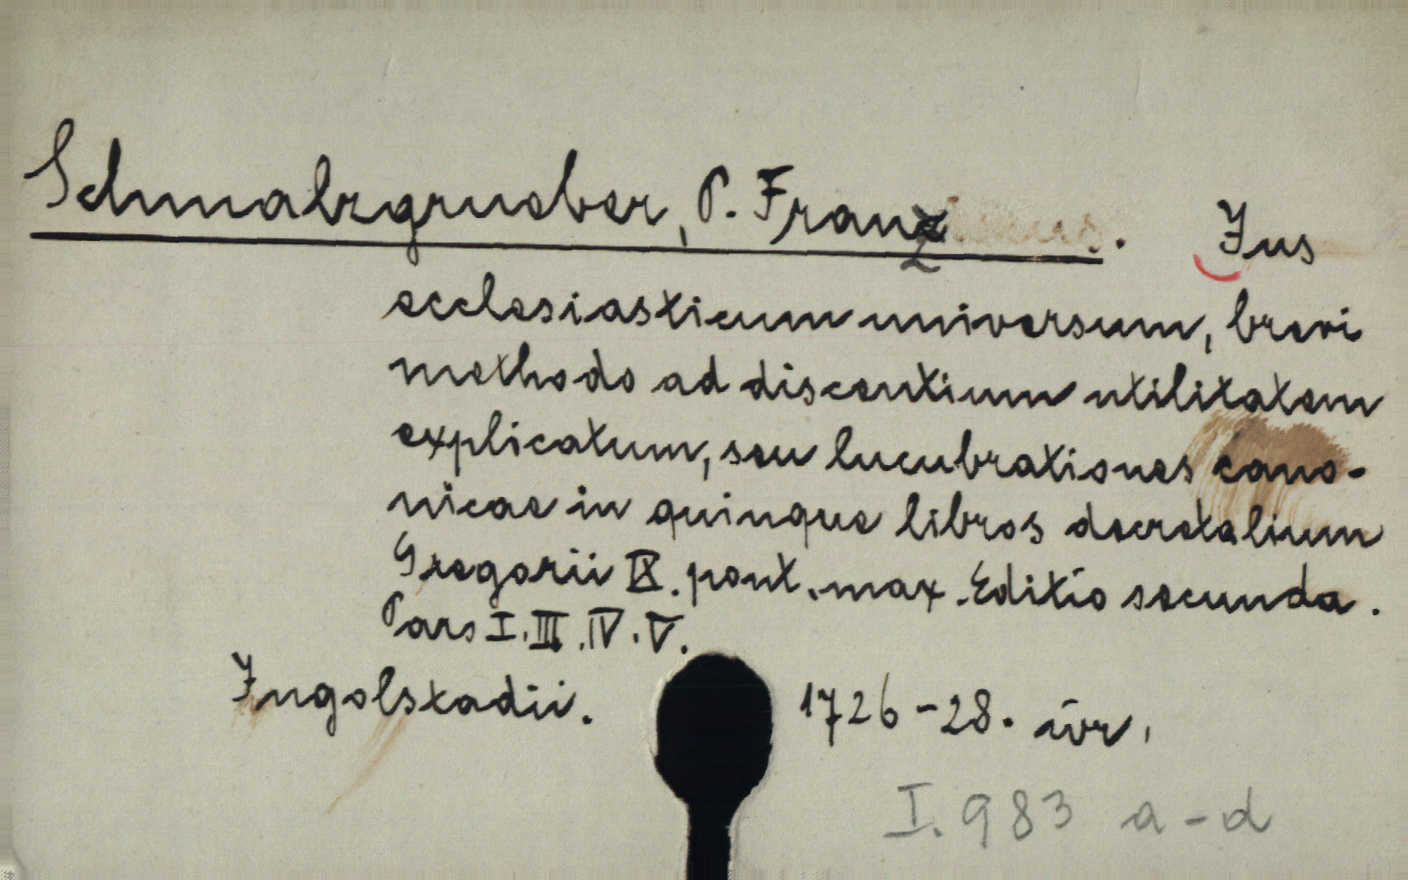 Schmalzgrueber, P. Franz. Jus
ecclesiasticum universum, brevi
methodo ad discentium utilitatem
explicatum, seu lucubrationes cano-
nicae in quinque libros decretalium
Gregorii IX. pont. max. Editio secunda.
Pars I. III. IV. V.
Ingolstadii. 1726-28. ívr.
I. 983 a-d